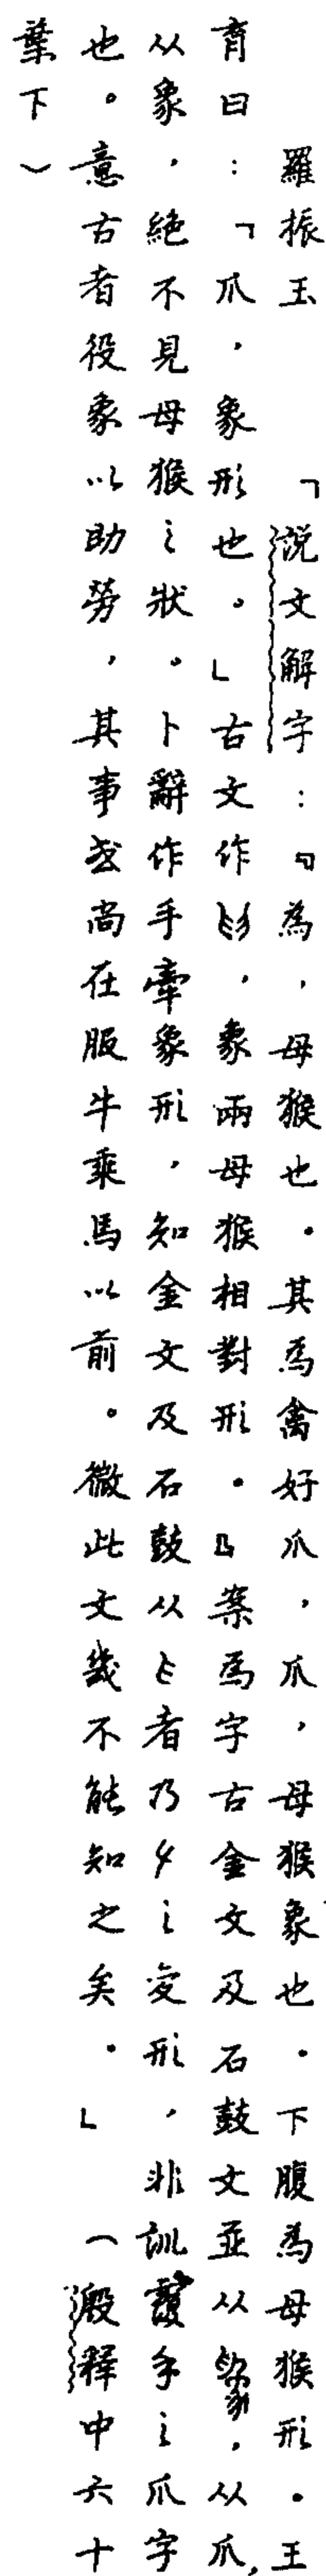 羅振玉　「說文解字：『為，母猴也。其爲禽好爪，爪，母猴象也。下腹為母猴形。王
育曰：「爪，象形也。」古文作，象兩母猴相對形。』案爲字古金文及石鼓文並从，从爪，
从象，絕不見母猴之狀。卜辭作手牽象形，知金文及石鼓从者乃之變形，非訓覆手之爪字
也。意古者役象以助勞，其事或尚在服牛乘馬以前。微此文幾不能知之矣。」（殷釋中六十
葉下）